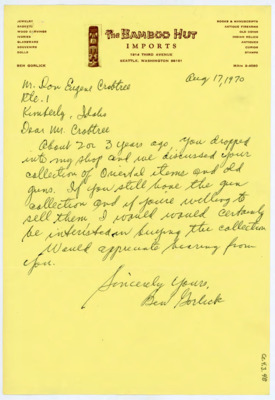 JEWELRY
BASKETS
WOOD CARVINGS
IVORIES
GLASSWARE
SOUVENIRS
DOLLS
THE BAMBOO HUT
IMPORTS
1914 THIRD AVENUE
SEATTLE, WASHINGTON 98101
SWORDS
ANTIQUE FIREARMS
OLD COINS
INDIAN RELICS
ANTIQUES
CURIOS
BEN GORLICK
Aug 17, 1970
Mr. Don Eugene Crabtree
Rte. 1
Kimberly, Idaho
Dear Mr. Crabtree
About 2 or 3 years ago, you dropped
into my shop and we discussed your
collection of Oriental items and old
guns. If you still have the gun
collection and if you're willing to
sell them I would would certainly
be interested in buying the collection.
Would appreciate hearing from
you.
Sincerely yours,
Ben Gorlick